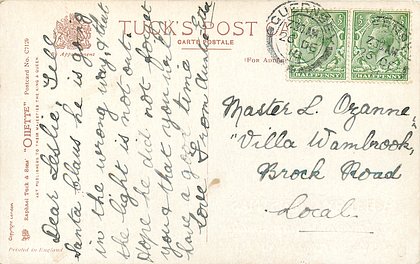 TUCK'S POST
CARTE POSTALE
(For Address
Appointment
Postcard No. C7120
Raphael Tuck & Sons' "OILETTE"
ART PUBLISHERS TO THEIR MAJESTIES THE KING & QUEEN
Copyright
Printed in England
Dear Leslie Tell
Santa Claus he is going
in the wrong way & that
the light is not out.
Hope he did not forget
you & that you have
have a good time
Love from
GUERNSEY
HALFPENNY
HALFPENNY
Master L. Ozanne
"Villa Wambrook,
Brock Road
Local